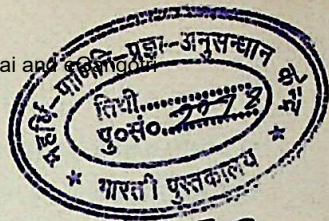 ai and eGangotri
महर्षि-पाणिनि-प्रज्ञा-अनुसन्धान केन्द्र
तिथी..............
पु०सं०
भारती पुस्तकालय